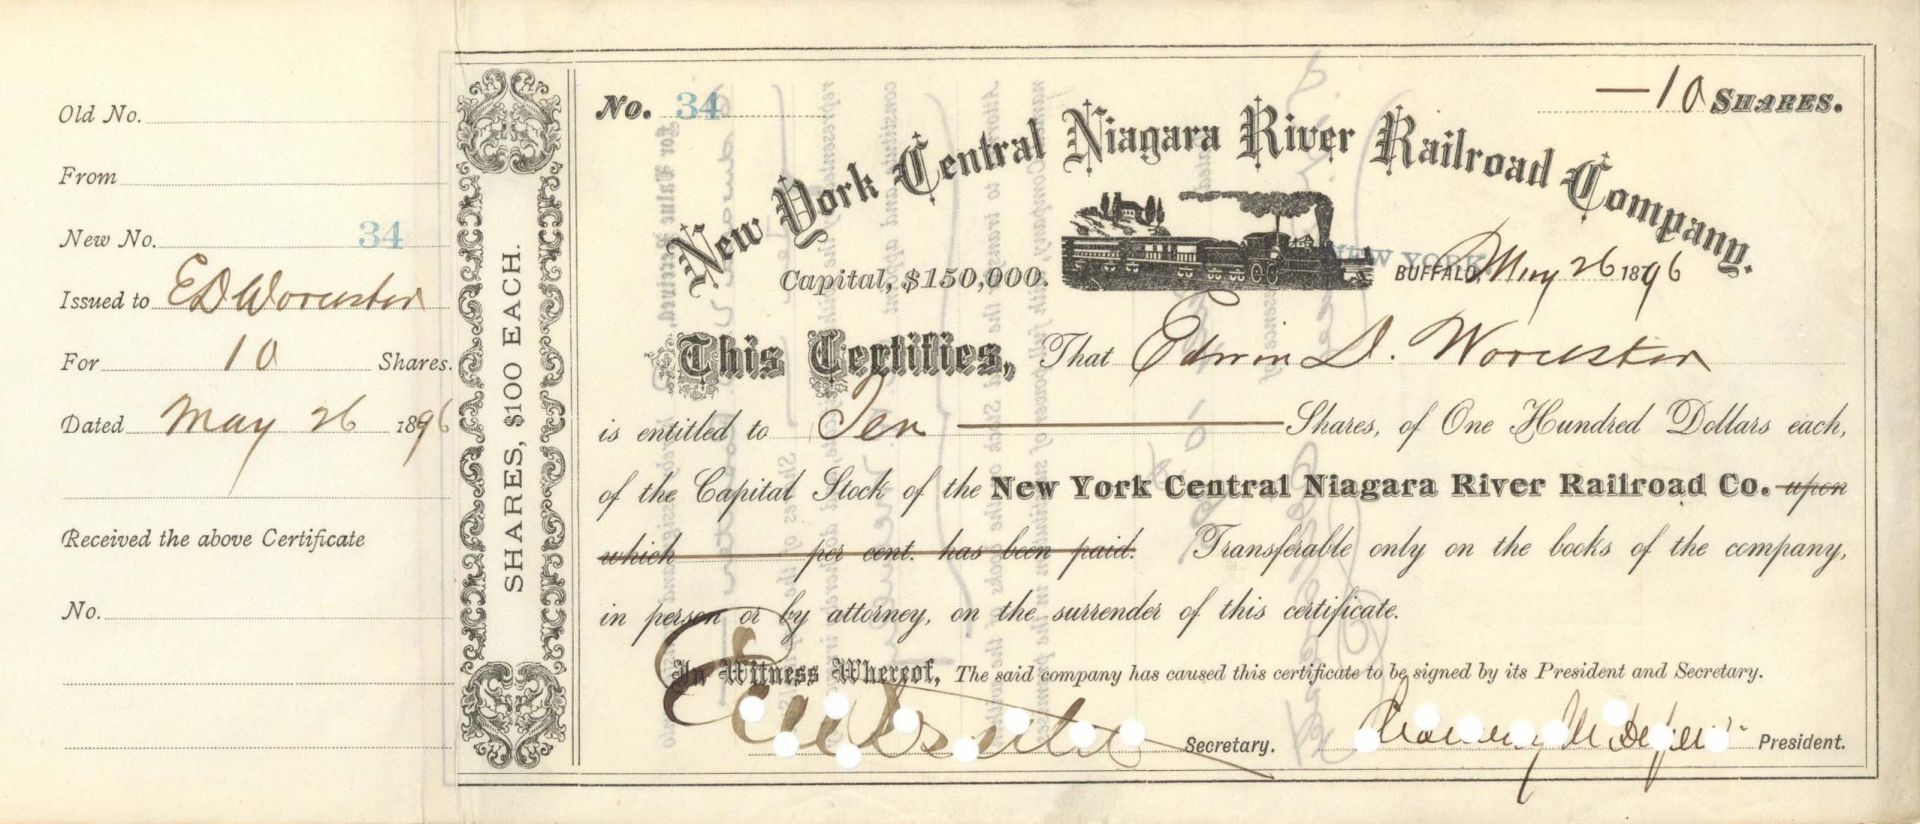 Old No.
From
New No. 34
Issued to E D Worcester
For 10 Shares.
Dated May 26 1896
Received the above Certificate
No.
SHARES, $100 EACH.
No. 34
—10 SHARES.
New York Central Niagara River Railroad Company.
Capital, $150,000.
NEW YORK.
BUFFALO, May 26 1896
This Certifies, That Edwin D. Worcester
is entitled to Ten — Shares, of One Hundred Dollars each,
of the Capital Stock of the New York Central Niagara River Railroad Co. upon
which per cent. has been paid. Transferable only on the books of the company,
in person or by attorney, on the surrender of this certificate.
In Witness Whereof, The said company has caused this certificate to be signed by its President and Secretary.
E D Worcester Secretary.
Chauncey M Depew President.